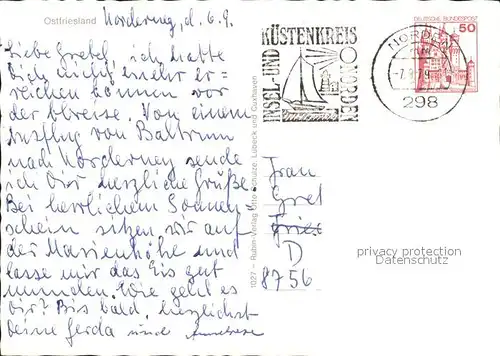 Ostfriesland
Norderney, d. 6. 9.
Liebe Gretel, ich hatte
Dich nicht mehr er=
reichen können vor
der Abreise. Von einem
Ausflug von Baltrum
nach Norderney sende
ich Dir herzliche Grüße.
Bei herrlichem Sonnen
schein sitzen wir auf
der Marienhöhe und
lasse mir das Eis gut
munden. Wie geht es
Dir? Bis bald, herzlichst
Deine Gerda und
1027 – Rubin-Verlag Otto Schulze, Lübeck und Cuxhaven
INSEL- UND
KÜSTENKREIS
NORDEN
NORDEN
-7.9.79
298
DEUTSCHE BUNDESPOST
50
Frau
Gret
D
8756
privacy protection
Datenschutz